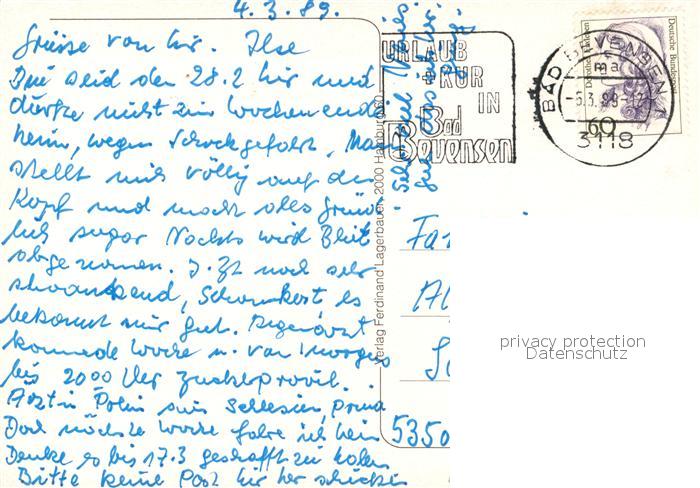 4.3.89.
Grüsse von hir. Ilse
Bin seid den 28.2 hir und
dürfte nicht zum Wochenende
heim, wegen Schockgefahr. Man
stellt mich völlig auf den
Kopf und macht alles gründ
lich sogar Nachts wird Blut
abgenomen. Z.Zt noch sehr
schwankend,
bekommt mir gut. Augenarzt
komende Woche u. von morgens
bis 2000 Uhr Zuckerprovil.
Ärztin Polin aus Schlesien, prima
Doch nächste Woche fahre ich heim
Denke es bis 17.3 geschafft zu haben
Bitte keine Post hir her schicken
Verlag Ferdinand Lagerbauer, 2000 Hamburg
URLAUB
KUR
IN
Bad
Bevensen
BAD BEVENSEN 1
ma
-6.3.89-17
3118
Deutsche Bundespost
60
Fa
Al
5350
privacy protection
Datenschutz